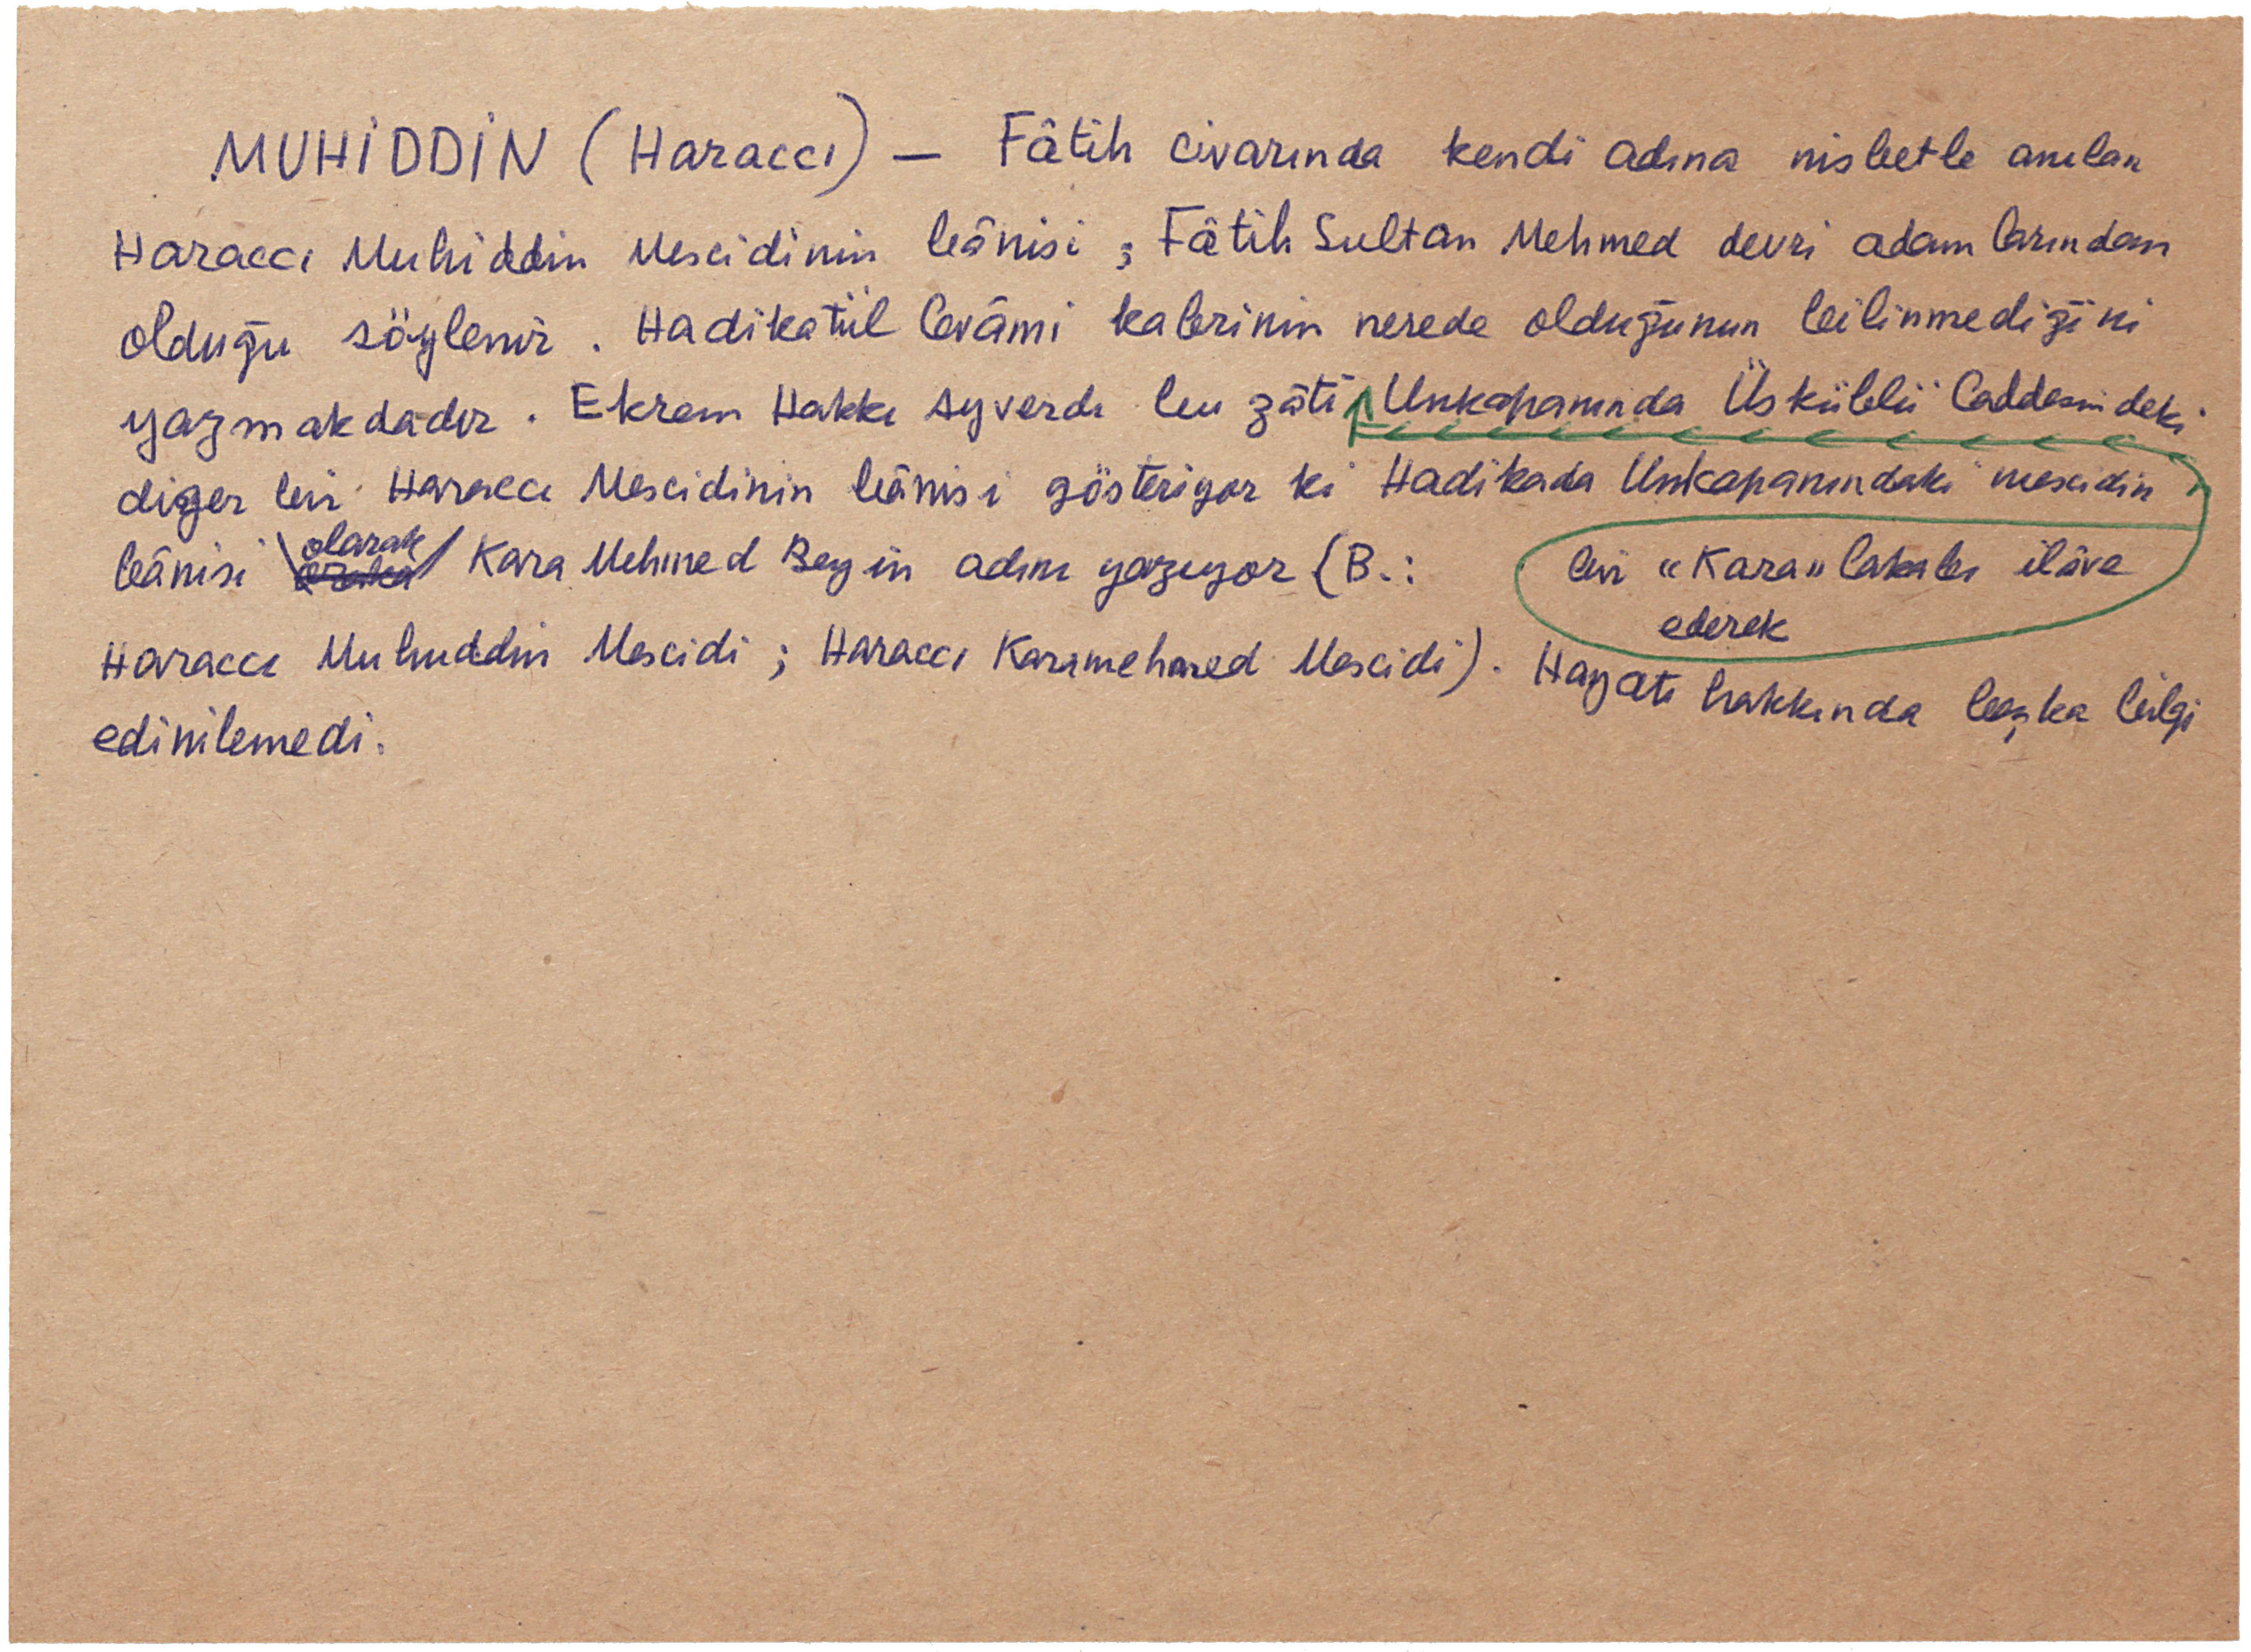 MUHİDDİN (Haraccı) — Fâtih civarında kendi adına nisbetle anılan
Haraccı Muhiddin Mescidinin bânisi ; Fâtih Sultan Mehmed devri adamlarından
olduğu söylenir . Hadikatül Cevâmi kabrinin nerede olduğunun bilinmediğini
yazmakdadır . Ekrem Hakkı Ayverdi bu zâti Unkapanında Üsküblü Caddesindeki
diğer bir Haraccı Mescidinin bânisi gösteriyor ki Hadikada Unkapanındaki mescidin
bânisi olarak Kara Mehmed Beyin adını yazıyor (B.:
bir «Kara» lakabı ilâve
ederek
Haraccı Muhiddin Mescidi ; Haraccı Karamehmed Mescidi) . Hayatı hakkında başka bilgi
edinilemedi .